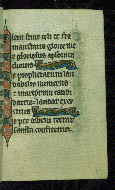 Pleni sunt celi et tra
maiestatis glorie tue
Te gloriosus apostolorum
chorus
Te prophetarum lau
dabilis numerus
Te martyrum candi
datus laudat exer
citus
Te per orbem terrarum
sancta confitetur